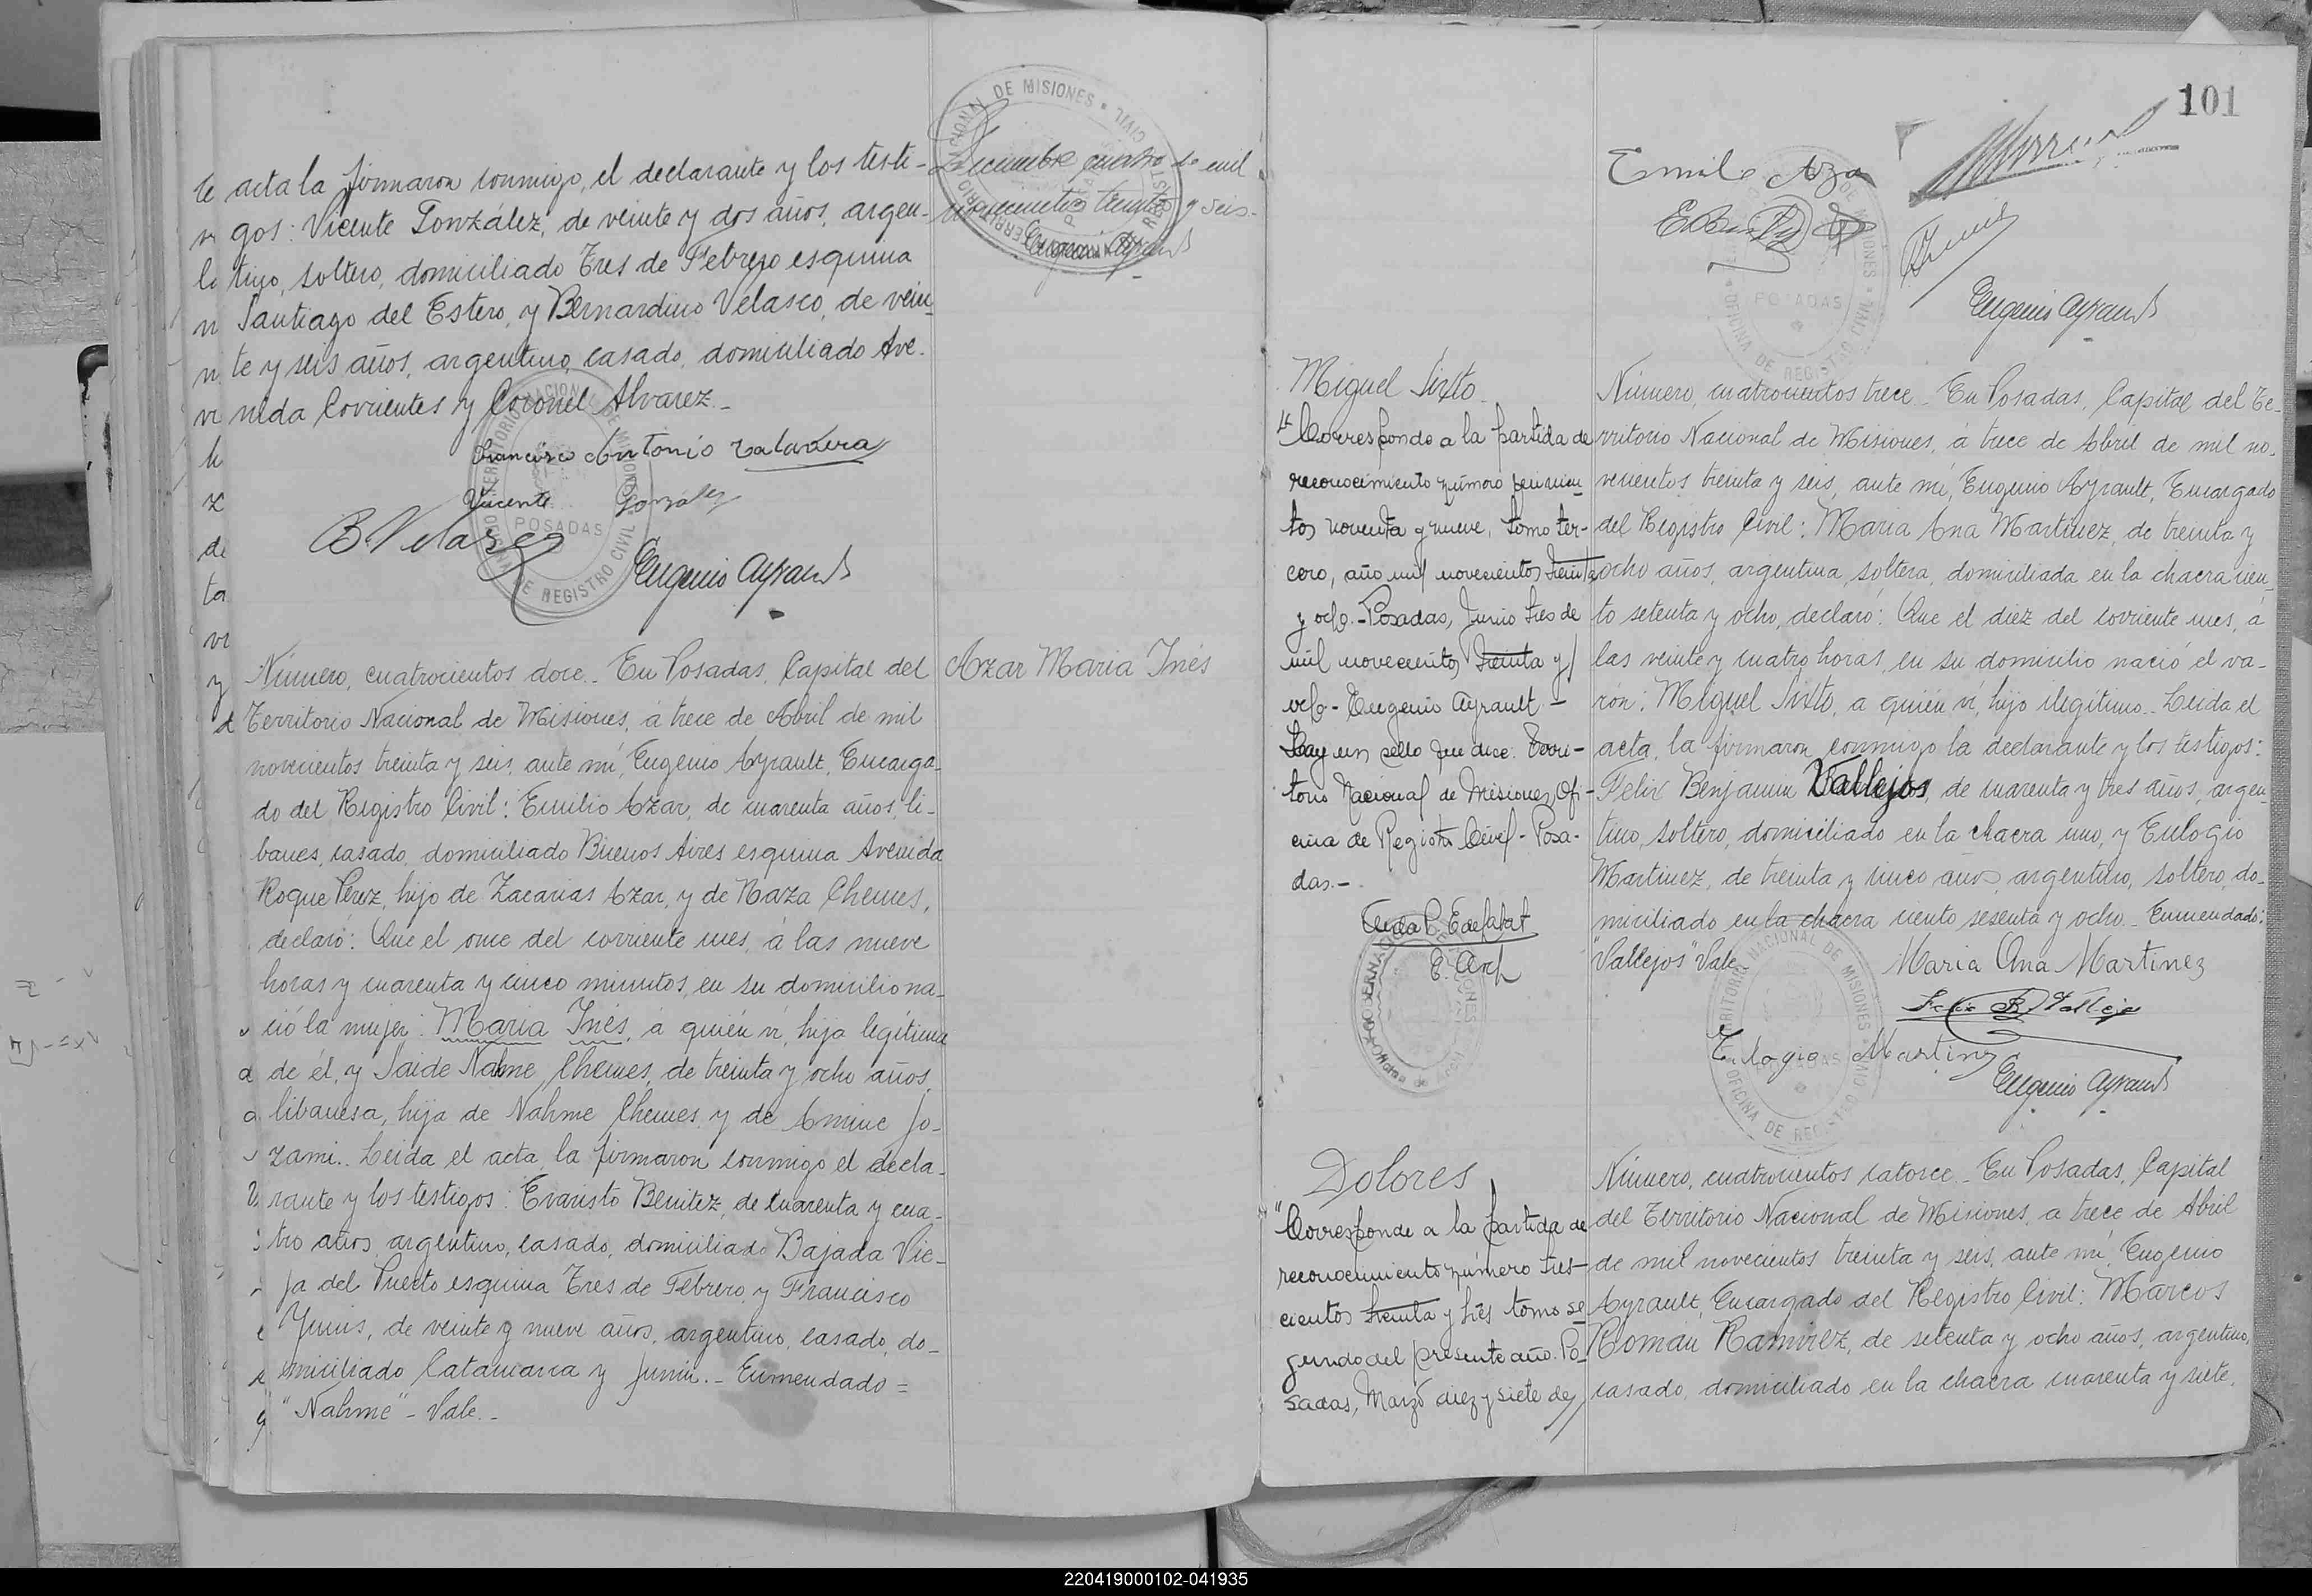 te acta la firmaron conmigo, el declarante y los testi-
gos: Vicente González, de veinte y dos años, argen-
tino, soltero, domiciliado Tres de Febrero esquina
Santiago del Estero, y Bernardino Velasco, de vein-
te y seis años, argentino, casado, domiciliado Ave-
nida Corrientes y Coronel Alvarez.-
Francisco Antonio Talavera
Vicente González
B. Velasco
Eugenio Ayrault
POSADAS
Diciembre cuatro de mil
novecientos treinta y seis.-
Eugenio Ayrault
DE MISIONES
Azar Maria Inés
Número, cuatrocientos doce.- En Posadas, Capital del
Territorio Nacional de Misiones, á trece de Abril de mil
novecientos treinta y seis, ante mí, Eugenio Ayrault, Encarga-
do del Registro Civil: Emilio Azar, de cuarenta años, li-
banes, casado, domiciliado Buenos Aires esquina Avenida
Roque Perez, hijo de Zacarias Azar, y de Naza Chemes,
declaró: Que el once del corriente mes, á las nueve
horas y cuarenta y cinco minutos, en su domicilio na-
ció la mujer: Maria Inés, á quién ví, hija legítima
de él, y Saide Nahme Chemes, de treinta y ocho años,
libanesa, hija de Nahme Chemes y de Amine Jo-
zami.. Leida el acta, la firmaron conmigo el decla-
rante y los testigos: Evaristo Benitez, de cuarenta y cua-
tro años, argentino, casado, domiciliado Bajada Vie-
ja del Puerto esquina Tres de Febrero, y Francisco
Yunis, de veinte y nueve años, argentino, casado, do-
miciliado Catamarca y Junin.- Enmendado =
"Nahme" - Vale.-
101
Emilio Azar
Eugenio Ayrault
POSADAS
Miguel Sixto.
"Corresponde a la partida de
reconocimiento número seiscien-
tos noventa y nueve, tomo ter-
cero, año mil novecientos treinta
y ocho.- Posadas, Junio tres de
mil novecientos treinta y
ocho - Eugenio Ayrault -
Hay un sello que dice: Terri-
torio Nacional de Misiones, Ofi-
cina de Registro Civil - Posa-
das.-
E. Arch
Número, cuatrocientos trece.- En Posadas, Capital del Te-
rritorio Nacional de Misiones, á trece de Abril de mil no-
vecientos treinta y seis, ante mí, Eugenio Ayrault, Encargado
del Registro Civil: Maria Ana Martinez, de treinta y
ocho años, argentina, soltera, domiciliada en la chacra cien-
to setenta y ocho, declaró: Que el diez del corriente mes, á
las veinte y cuatro horas, en su domicilio nació el va-
rón: Miguel Sixto, a quién ví, hijo ilegítimo.- Leida el
acta, la firmaron conmigo la declarante y los testigos:
Felix Benjamin Vallejos, de cuarenta y tres años, argen-
tino, soltero, domiciliado en la chacra uno, y Eulogio
Martinez, de treinta y cinco años, argentino, soltero, do-
miciliado en la chacra ciento sesenta y ocho.- Enmendado:
"Vallejos" Vale
Maria Ana Martinez
Felix B Vallejo
Eulogio Martinez
Eugenio Ayrault
Dolores
"Corresponde a la partida de
reconocimiento número tres-
cientos treinta y tres tomo se
gundo del presente año. Po-
sadas, Marzo diez y siete de
Número, cuatrocientos catorce.- En Posadas, Capital
del Territorio Nacional de Misiones, a trece de Abril
de mil novecientos treinta y seis, ante mí, Eugenio
Ayrault, Encargado del Registro Civil: Marcos
Román Ramirez, de setenta y ocho años, argentino,
casado, domiciliado en la chacra cuarenta y siete,
220419000102-041935